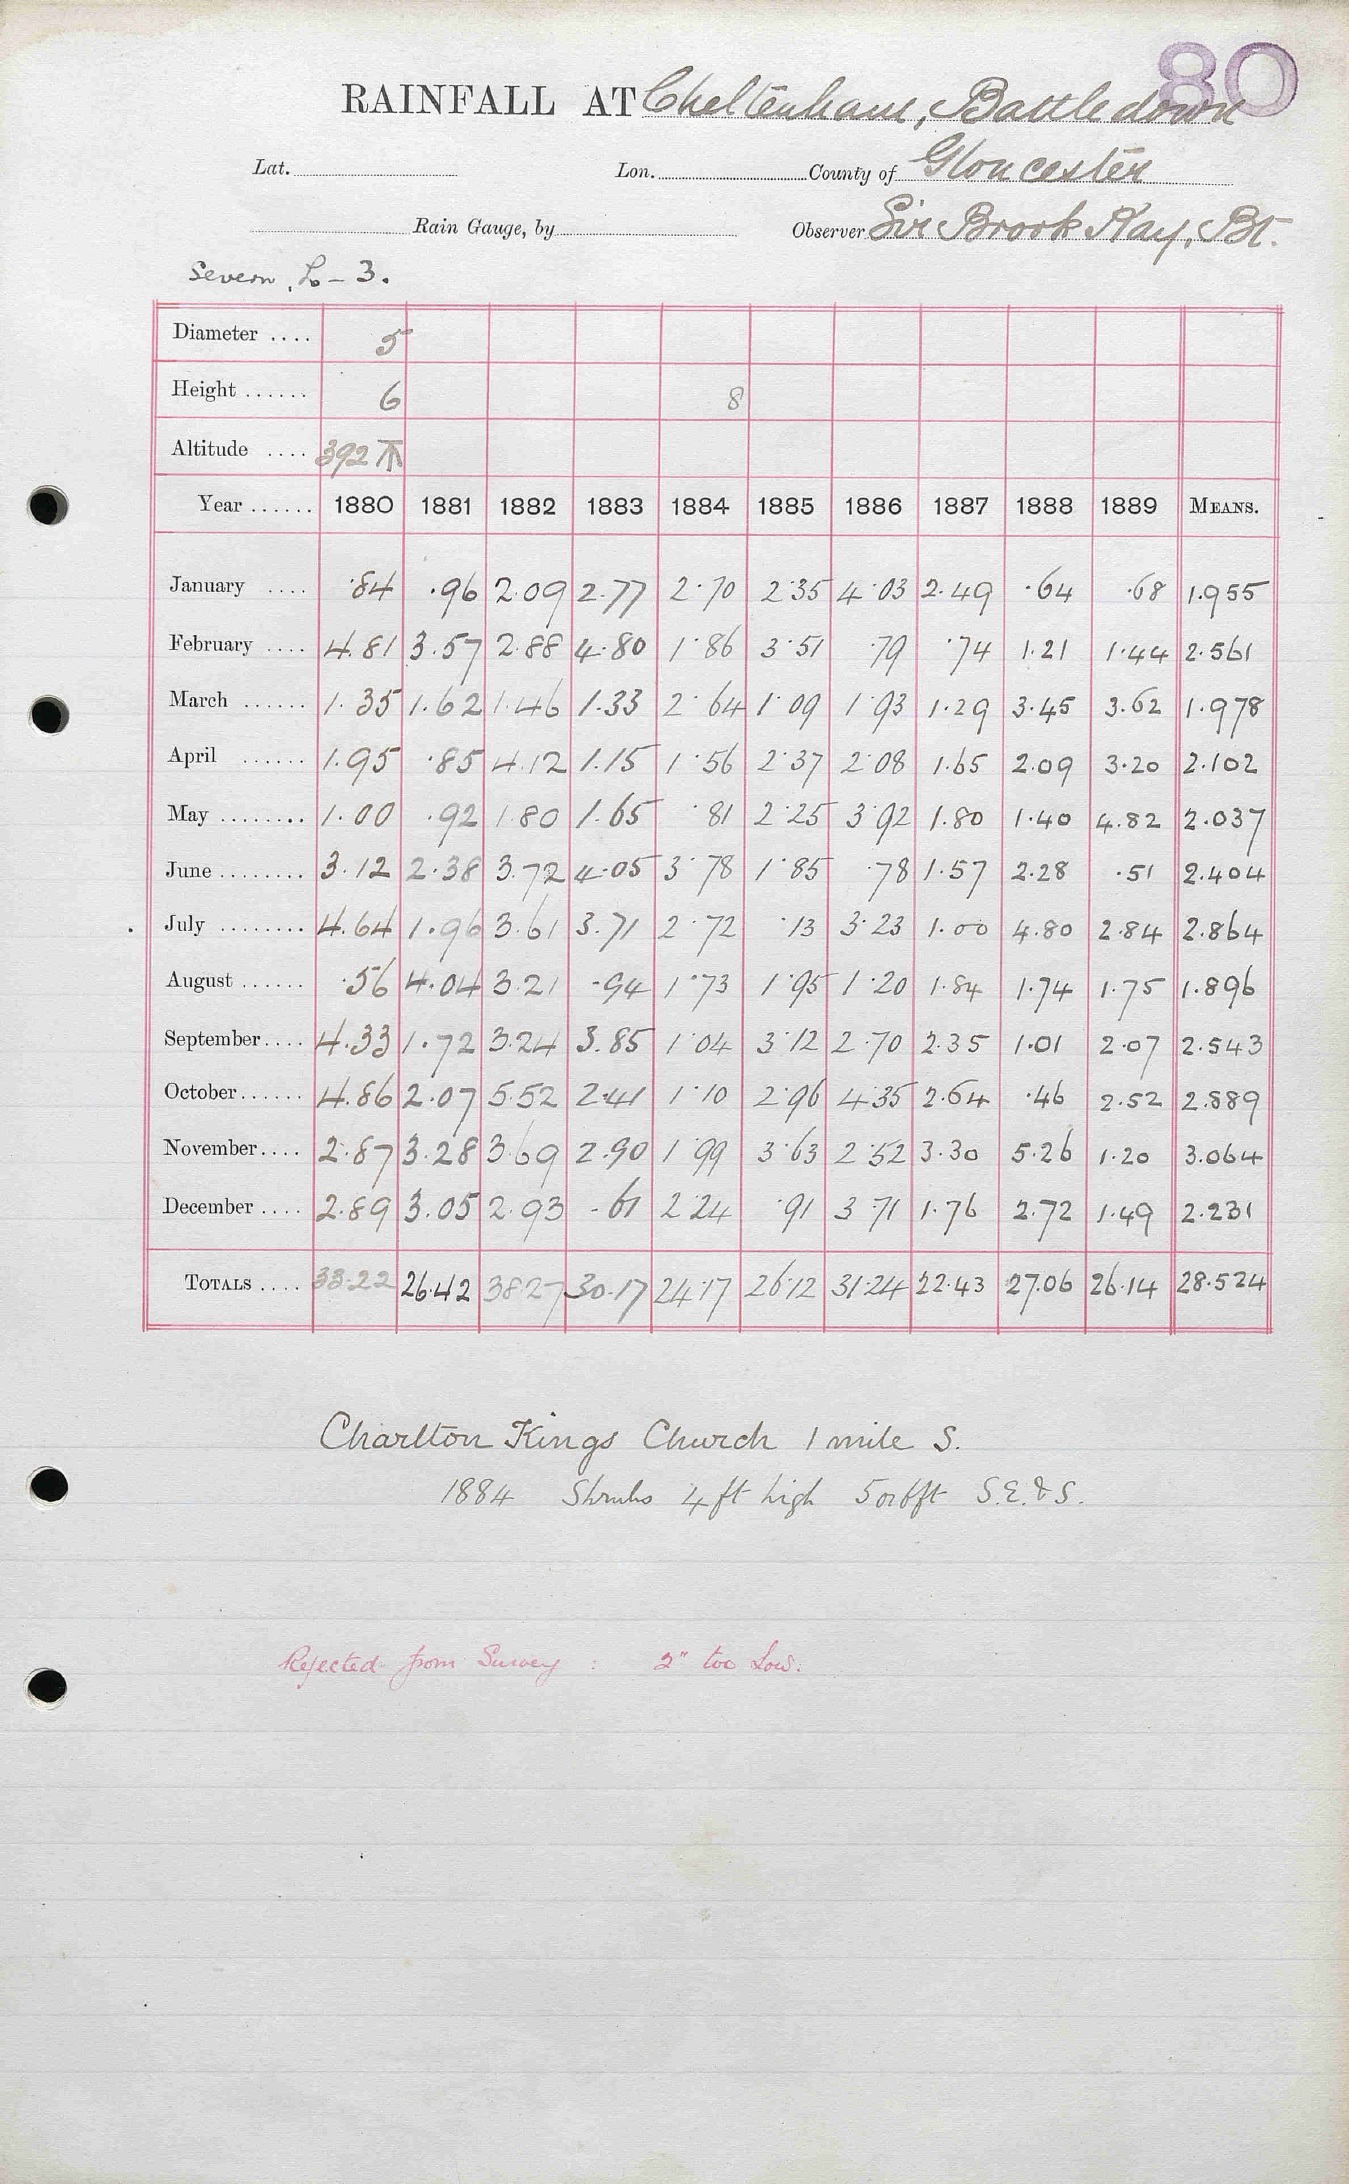 80
RAINFALL AT Cheltenham, Battledown
Lat. Lon. County of Gloucester
Rain Gauge, by Observer Sir Brook Kay, Bt.
Severn, L - 3.
Diameter .... 5
Height ...... 6 8
Altitude .... 392
Year ...... 1880 1881 1882 1883 1884 1885 1886 1887 1888 1889 MEANS.
January .... .84 .96 2.09 2.77 2.70 2.35 4.03 2.49 .64 .68 1.955
February .... 4.81 3.57 2.88 4.80 1.86 3.51 .79 .74 1.21 1.44 2.561
March ...... 1.35 1.62 1.46 1.33 2.64 1.09 1.93 1.29 3.45 3.62 1.978
April ...... 1.95 .85 4.12 1.15 1.56 2.37 2.08 1.65 2.09 3.20 2.102
May ........ 1.00 .92 1.80 1.65 .81 2.25 3.92 1.80 1.40 4.82 2.037
June ........ 3.12 2.38 3.72 4.05 3.78 1.85 .78 1.57 2.28 .51 2.404
July ........ 4.64 1.96 3.61 3.71 2.72 .13 3.23 1.00 4.80 2.84 2.864
August ...... .56 4.04 3.21 .94 1.73 1.95 1.20 1.84 1.74 1.75 1.896
September.... 4.33 1.72 3.24 3.85 1.04 3.12 2.70 2.35 1.01 2.07 2.543
October...... 4.86 2.07 5.52 2.41 1.10 2.96 4.35 2.64 .46 2.52 2.889
November.... 2.87 3.28 3.69 2.90 1.99 3.63 2.52 3.30 5.26 1.20 3.064
December .... 2.89 3.05 2.93 .61 2.24 .91 3.71 1.76 2.72 1.49 2.231
TOTALS .... 33.22 26.42 38.27 30.17 24.17 26.12 31.24 22.43 27.06 26.14 28.524
Charlton Kings Church 1 mile S.
1884 Shrubs 4 ft high 5 or 6 ft S.E. & S.
Rejected from Survey : 2" too Low.